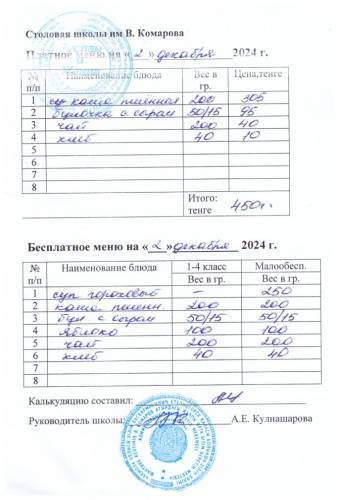 Столовая школы им В. Комарова
Платное меню на « 2 » декабря 2024 г.
№ п/п Наименование блюда Вес в гр. Цена,тенге
1 суп каша пшённая 200 305
2 булочка с сыром 50/15 95
3 чай 200 40
4 хлеб 40 10
5
6
7
8
Итого: тенге 450т.
Бесплатное меню на « 2 » декабря 2024 г.
№ п/п Наименование блюда 1-4 класс Малообесп.
Вес в гр. Вес в гр.
1 суп гороховый – 250
2 каша пшенн. 200 200
3 бул с сыром 50/15 50/15
4 яблоко 100 100
5 чай 200 200
6 хлеб 40 40
7
8
Калькуляцию составил:
Руководитель школы: А.Е. Кулнашарова